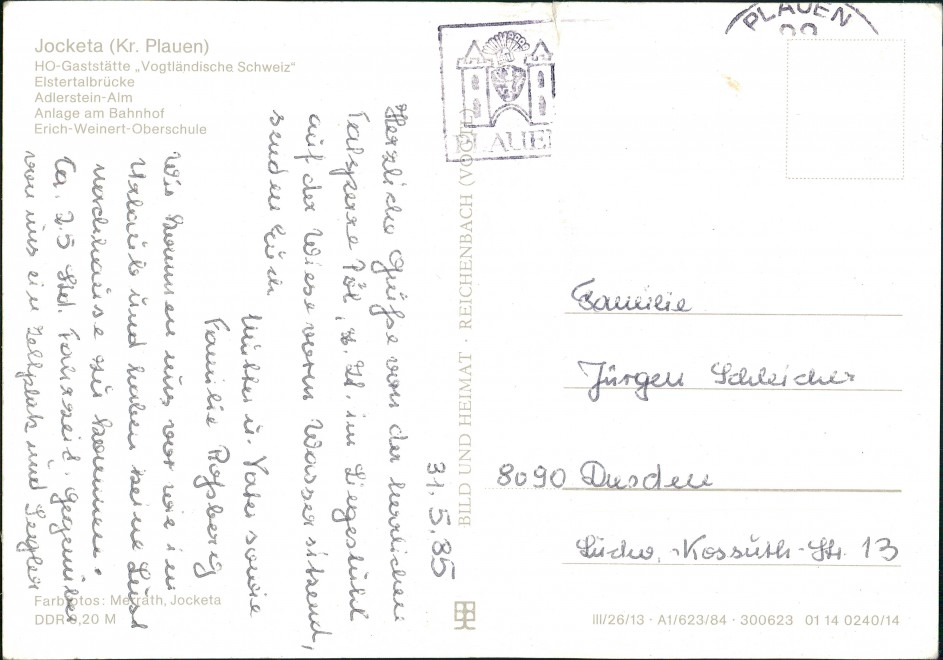 Jocketa (Kr. Plauen)
HO-Gaststätte „Vogtländische Schweiz“
Elstertalbrücke
Adlerstein-Alm
Anlage am Bahnhof
Erich-Weinert-Oberschule
31.5.85
Herzliche Grüße von der herrlichen
Talsperre Pöl, z. Zt. im Liegestuhl
auf der Wiese vorm Wasser sitzend,
senden Euch
Mutti u. Vati sowie
Familie Roßberg
Wir kommen uns vor wie im
Urlaub und haben keine Lust
nachhause zu kommen.
Ca. 2,5 Std. Fahrzeit. Gegenüber
von uns ein Zeltplatz und Segler
Farbfotos: Merath, Jocketa
DDR 0,20 M
BILD UND HEIMAT · REICHENBACH (VOGTL)
PLAUEN
PLAUEN
Familie
Jürgen Schleicher
8090 Dresden
Ludw.-Kossuth-Str. 13
III/26/13 · A1/623/84 · 300623 01 14 0240/14